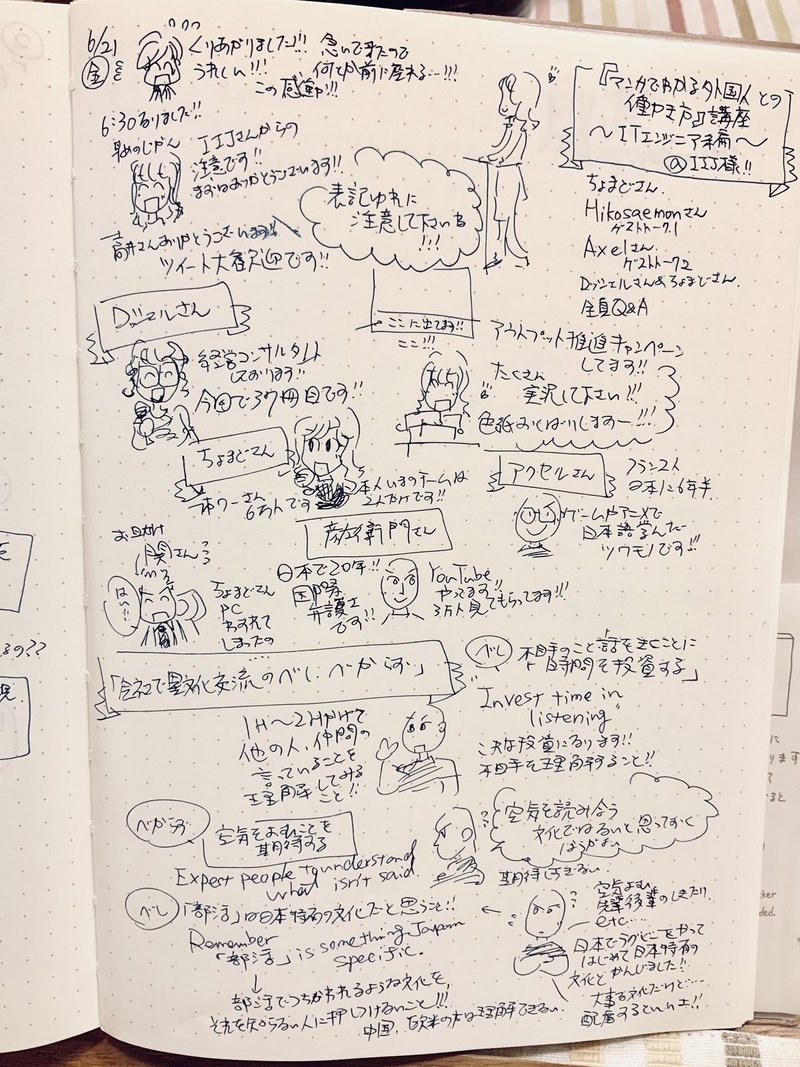 6/21
金
くりあがりました!!!
うれしい!!!
急いで来たので
何とか前に座れる…!!!
この感動!!!
『マンガでわかる外国人との
働き方』講座
～ITエンジニア編～
@IIJ様!!
6:30なりました!!
IIJさんからの
注意です!!
まずはありがとうございます!!
ツイート大歓迎です!!
表記ゆれに
注意して下さいね
!!!
ちょまどさん
Hikosaemonさん
ゲストトーク1
Axelさん
ゲストトーク2
Dッシェルさん&ちょまどさん
全員Q&A
ここに出てます!!
ここ!!!
アウトプット推進キャンペーン
してます!!
たくさん
実況して下さい!!!
Dッシェルさん
経営コンサルタント
しております!!
今回で37冊目です!!
ちょまどさん
フォロワーさん
6万人です
日本人いまのチームは
2人だけです!!
アクセルさん
フランス人
日本に6年半
ゲームやアニメで
日本語学んだ
ツワモノです!!!
彦左衛門さん
日本で20年!!
国際
弁護士
です!!
YouTube
やってます!!
3万人見てもらってます!!!
お出かけ
関さん
はい!!
ちょまどさん
PC
わすれて
しまったの
「会社で異文化交流のべし、べからず」
べし
相手のこと話を聞くことに
「時間を投資する」
Invest time in
listening
大きな投資になります!!
相手を理解すること!!
1H～2Hかけて
他の人、仲間の
言っていることを
理解してみる
こと!!
べからず
空気をよむことを
期待する
Expect people to understand
what isn't said.
空気を読み合う
文化ではないと思っておく
ほうがよい
期待しすぎない
べし
「部活」は日本特有の文化だと思うこと!!
Remember
「部活」is something Japan
specific.
↓
部活でつちかわれるような文化を、
それを知らない人に押しつけないこと!!!
中国、欧米の方は理解できない
空気よむ
先輩後輩のしきたり
etc…
日本でラグビーをやって
はじめて日本特有の
文化とかんじました!!
大事な文化だけど…
配慮するといいよ!!